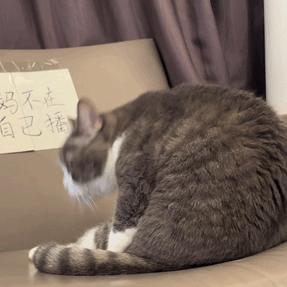 妈不在
自己播